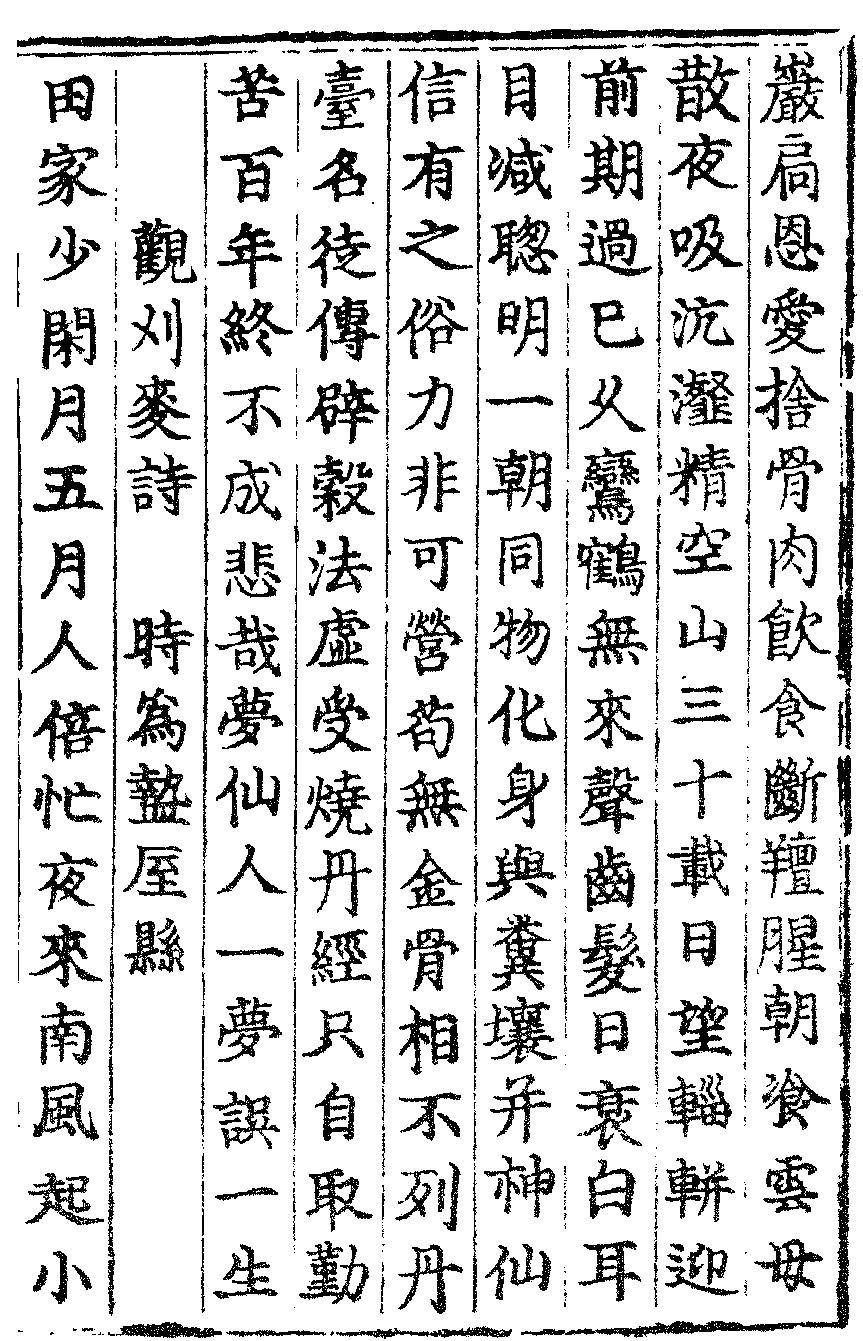 巖扃恩愛捨骨肉飲食斷羶腥朝飡雲母
散夜吸沆瀣精空山三十載日望輜軿迎
前期過已久鸞鶴無來聲齒髮日衰白耳
目減聦明一朝同物化身與糞壤并神仙
信有之俗力非可營苟無金骨相不列丹
臺名徒傳辟穀法虛受燒丹經只自取勤
苦百年終不成悲哉夢仙人一夢誤一生
觀刈麥詩 時爲盩厔縣
田家少閑月五月人倍忙夜來南風起小